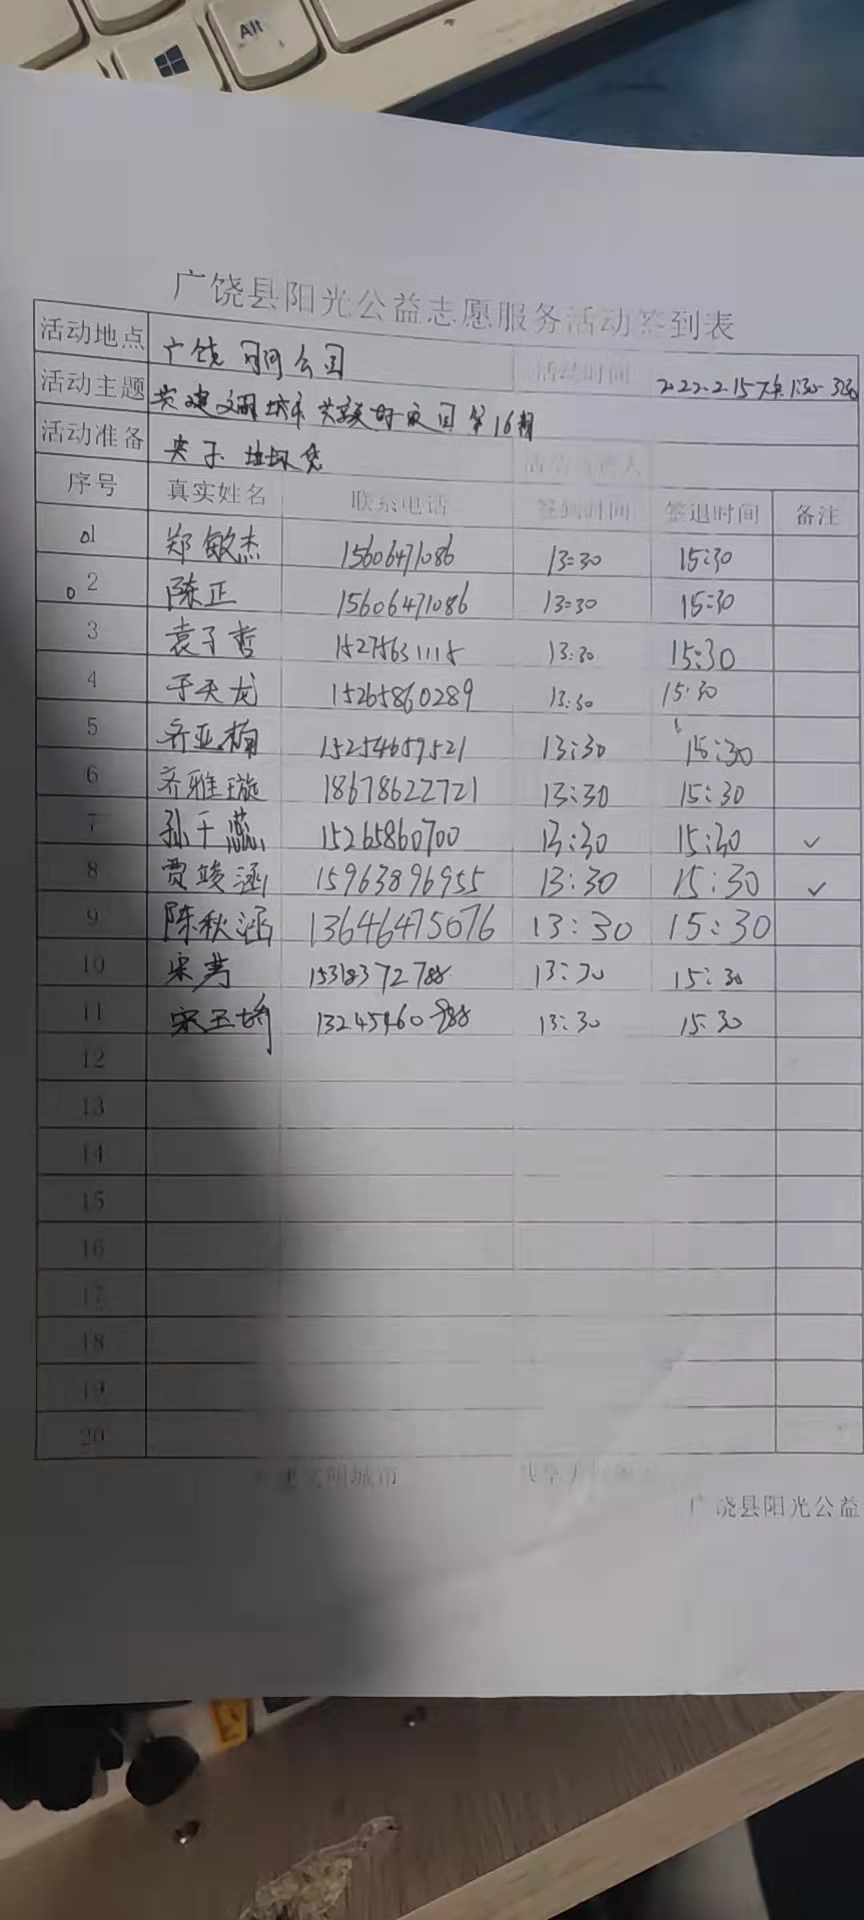 Alt
广饶县阳光公益志愿服务活动签到表
活动地点 广饶 公园 活动时间 2022.2.15
活动主题 共建文明城市 共享美好家园 第16期
活动准备 夹子 垃圾袋
序号 真实姓名 联系电话 签到时间 签退时间 备注
1 郑敏杰 15606471086 13:30 15:30
2 陈正 15606471086 13:30 15:30
3 袁子哲 15275631115 13:30 15:30
4 于天龙 15265860289 13:30 15:30
5 齐亚楠 15254659521 13:30 15:30
6 齐雅璇 18678622721 13:30 15:30
7 孙千蕊 15265860700 13:30 15:30 ✓
8 贾竣涵 15963896955 13:30 15:30 ✓
9 陈秋涵 13646475076 13:30 15:30
10 15318372788 13:30 15:30
11 宋玉琦 13:30 15:30
12
13
14
15
16
17
18
19
20
建文明城市
广饶县阳光公益